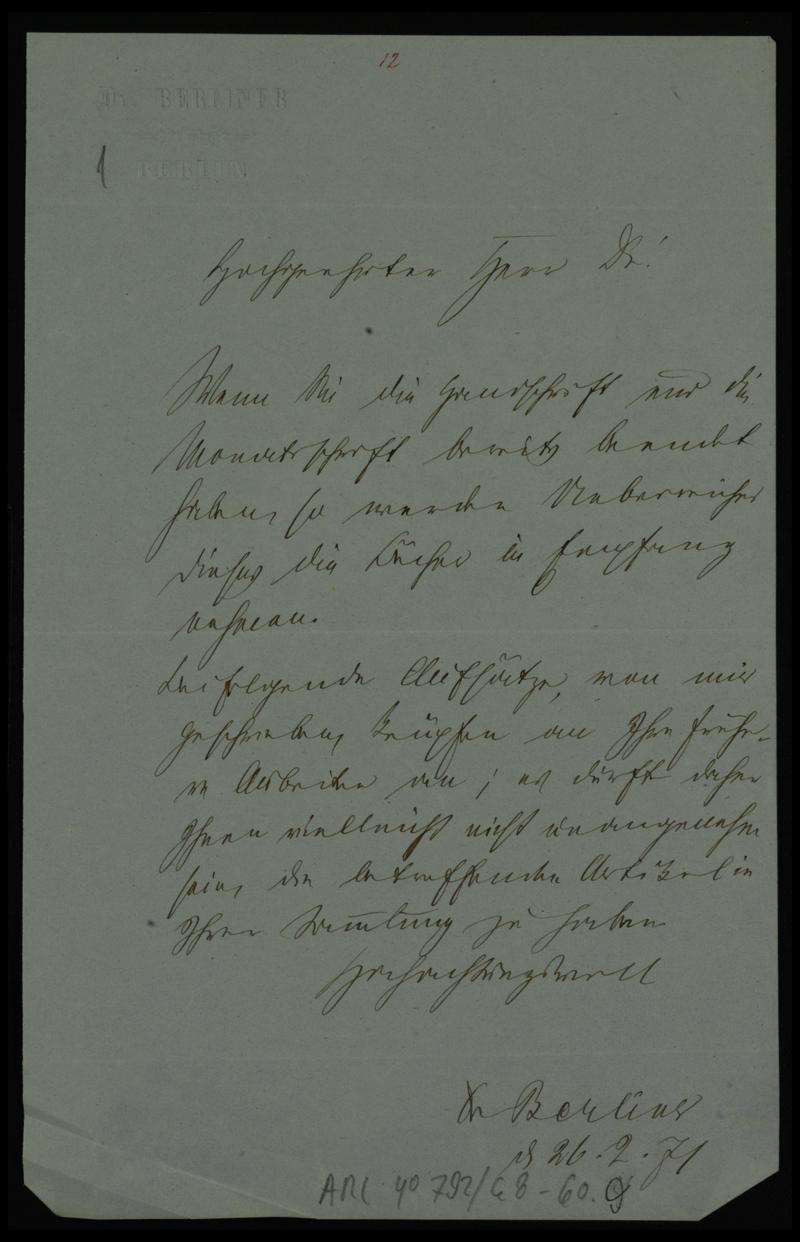 12
Dr. BERLINER
BERLIN
1
Hochgeehrter Herr Dr!
Wenn Sie die Handschrift und die
Monatsschrift bereits beendet
haben, so werden Ueberreicher
dieses die Bücher in Empfang
nehmen.
Beifolgende Aufsätze, von mir
geschrieben, knüpfen an Ihre frühe-
re Arbeiten an; es dürfte daher
Ihnen vielleicht nicht unangenehm
sein, die betreffenden Artikel in
Ihrer Sammlung zu haben
Hochachtungsvoll
Dr Berliner
d 26. 2. 71
ARC 4o 792/G8-60.